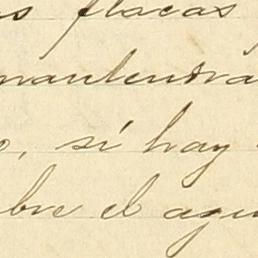 s flacas
mantendra
o, sí hay
bre el agu